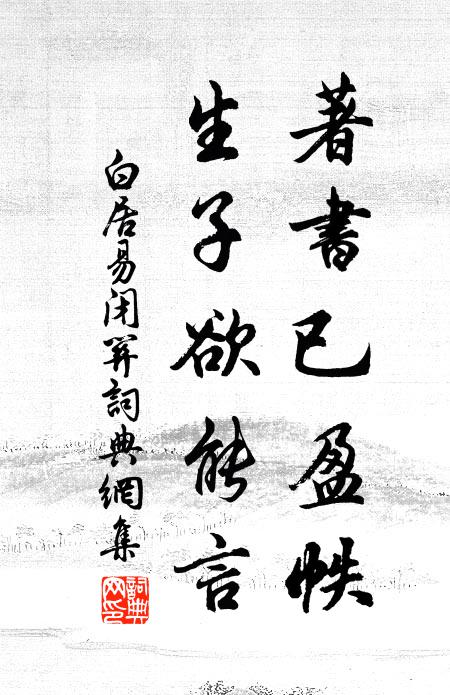 著書已盈帙
生子欲能言
白居易閉關詞典網集
詞典网印